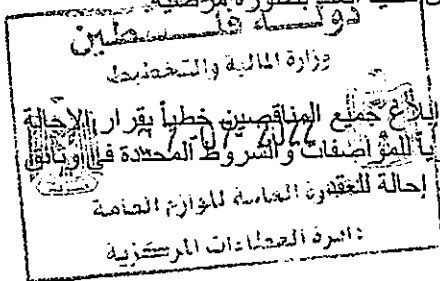 بصورة مرضية
دولة فلسطين
وزارة المالية والتخطيط
إبلاغ جميع المناقصين خطياً بقرار الإحالة
للمواصفات والشروط المحددة في وثائق
إحالة للعقود العامة للوازم العامة
دائرة العطاءات المركزية